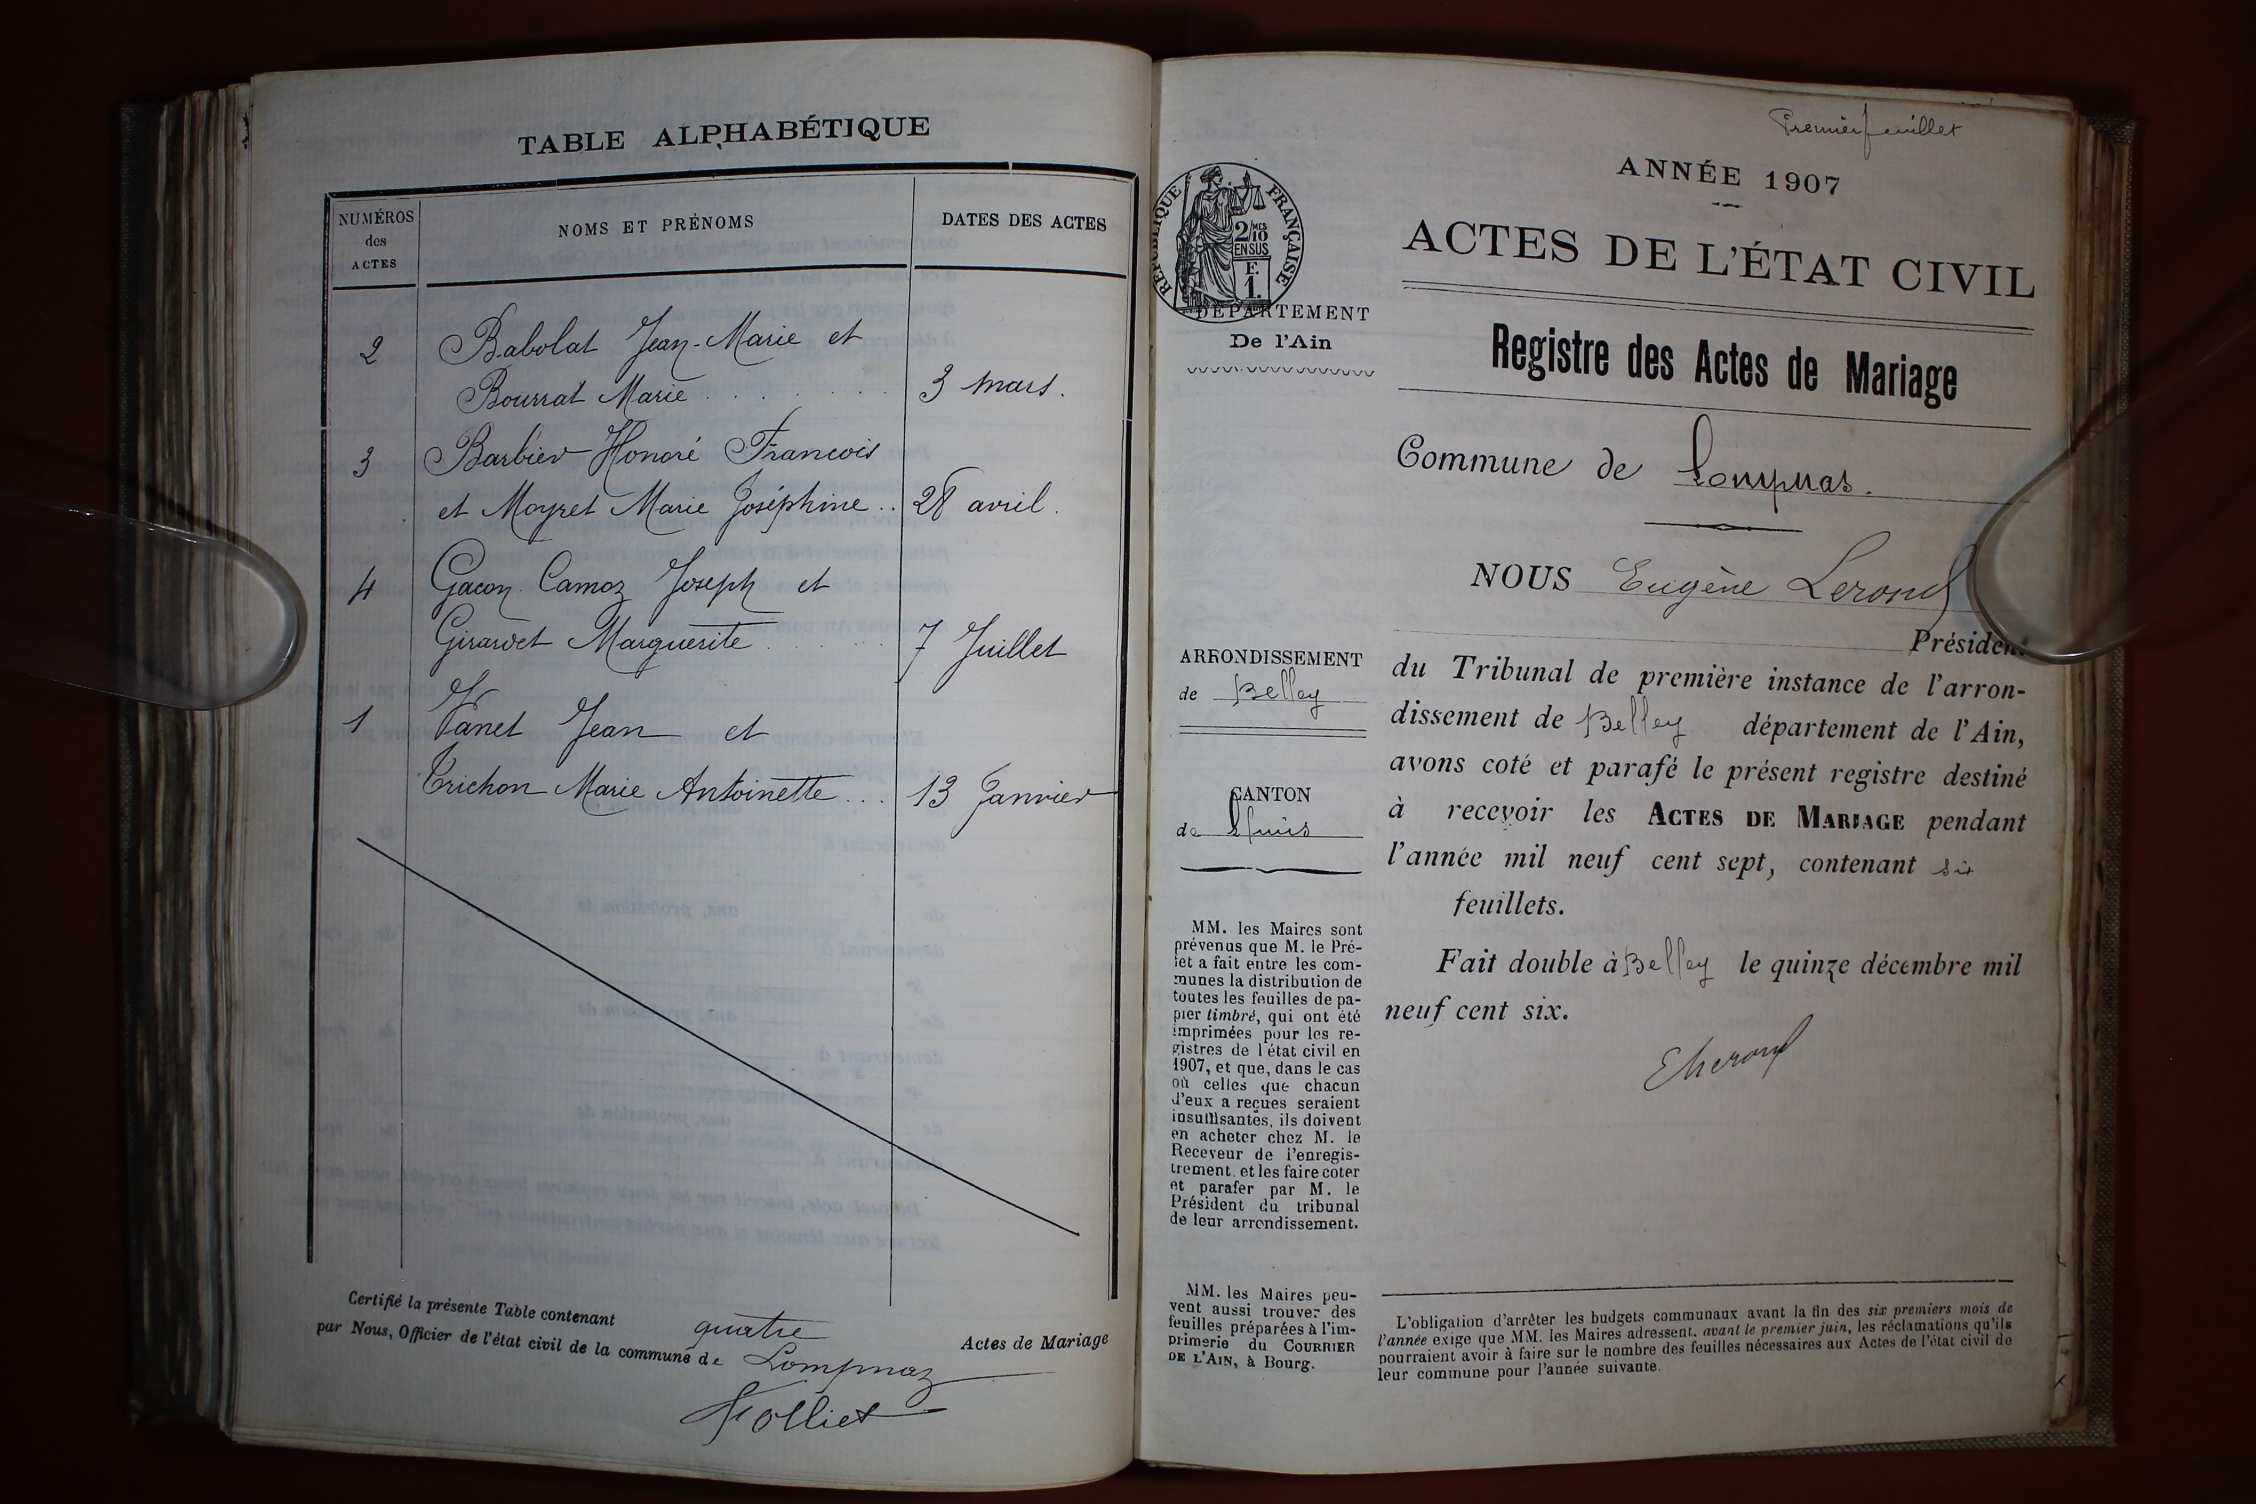 TABLE ALPHABÉTIQUE
NUMÉROS
des
ACTES
NOMS ET PRÉNOMS
DATES DES ACTES
2 Babolat Jean-Marie et
Bourrat Marie 3 mars.
3 Barbier Honoré Francois
et Moyret Marie Joséphine 28 avril.
4 Gacon-Camoz Joseph et
Girardet Marguerite 7 Juillet
1 Vanet Jean et
Trichon Marie Antoinette 13 Janvier
Certifié la présente Table contenant quatre Actes de Mariage
par Nous, Officier de l'état civil de la commune de Lompnaz
Folliet
Premier feuillet
ANNÉE 1907
ACTES DE L'ÉTAT CIVIL
RÉPUBLIQUE FRANÇAISE
2/10 MES
EN SUS
F.
1.
DÉPARTEMENT
De l'Ain
Registre des Actes de Mariage
Commune de Lompnas.
NOUS Eugène Lerond
Président
ARRONDISSEMENT
de Belley
CANTON
de Lhuis
du Tribunal de première instance de l'arron-
dissement de Belley département de l'Ain,
avons coté et parafé le présent registre destiné
à recevoir les ACTES DE MARIAGE pendant
l'année mil neuf cent sept, contenant six
feuillets.
Fait double à Belley le quinze décembre mil
neuf cent six.
ELerond
MM. les Maires sont
prévenus que M. le Pré-
fet a fait entre les com-
munes la distribution de
toutes les feuilles de pa-
pier timbré, qui ont été
imprimées pour les re-
gistres de l'état civil en
1907, et que, dans le cas
où celles que chacun
d'eux a reçues seraient
insuffisantes, ils doivent
en acheter chez M. le
Receveur de l'enregis-
trement, et les faire coter
et parafer par M. le
Président du tribunal
de leur arrondissement.
MM. les Maires peu-
vent aussi trouver des
feuilles préparées à l'im-
primerie du COURRIER
DE L'AIN, à Bourg.
L'obligation d'arrêter les budgets communaux avant la fin des six premiers mois de
l'année exige que MM. les Maires adressent, avant le premier juin, les réclamations qu'ils
pourraient avoir à faire sur le nombre des feuilles nécessaires aux Actes de l'état civil de
leur commune pour l'année suivante.